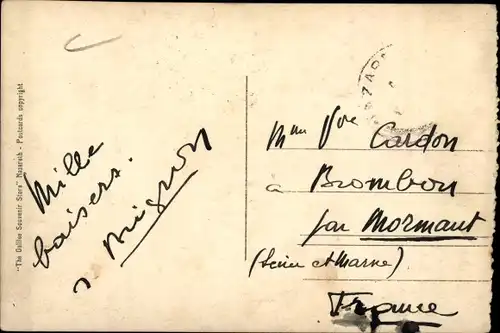 "The Galilee Souvenir Store" Nazareth - Postcards copyright
Mille
baisers.
Mignon
Mme Vve Cardon
à Brombon
par Mormant
(Seine et Marne)
France